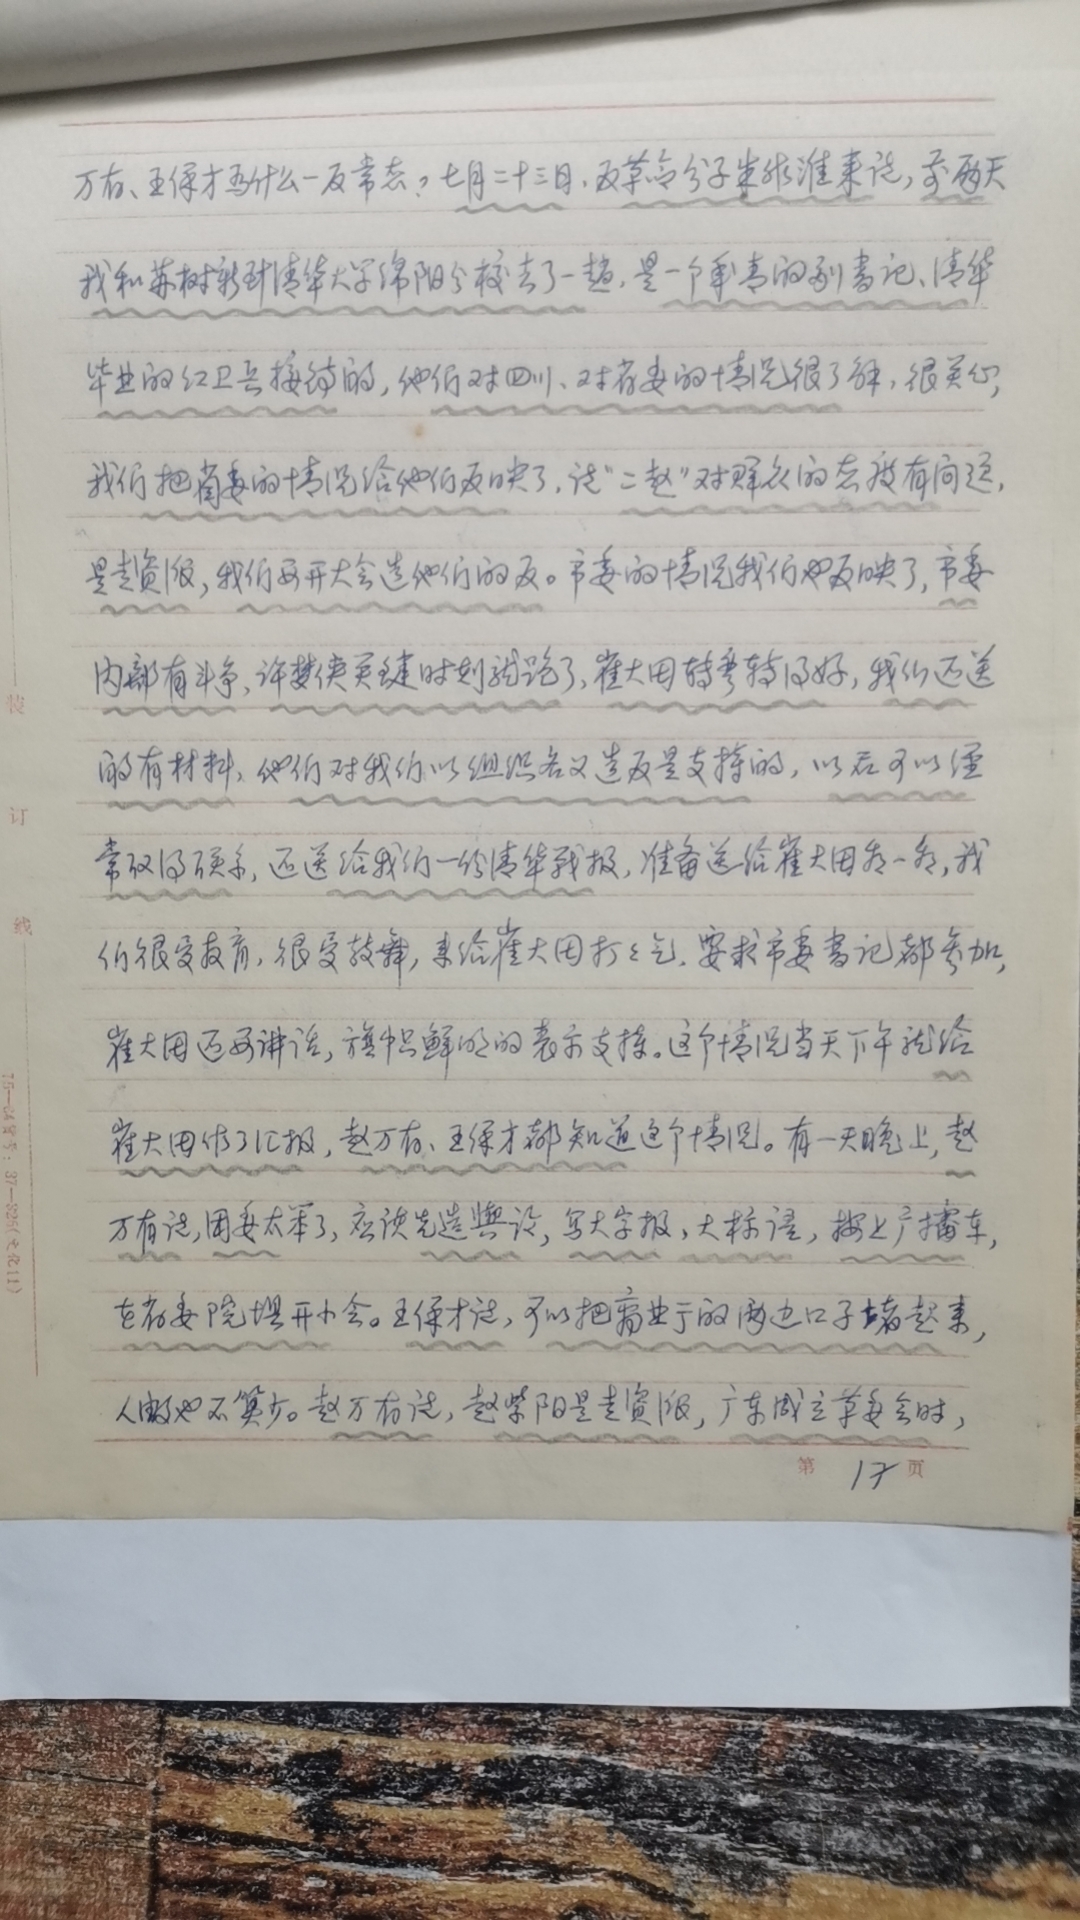 万有、王保才为什么一反常态？七月二十三日，反革命分子朱能淮来说，前两天
我和苏树新到清华大学绵阳分校去了一趟，是一个年青的副书记、清华
毕业的红卫兵接待的，他们对四川、对省委的情况很了解，很关心，
我们把省委的情况给他们反映了，说“二赵”对群众的态度有问题，
是走资派，我们要开大会造他们的反。市委的情况我们也反映了，市委
内部有斗争，许梦侠关键时刻就跑了，崔大田转弯转得好，我们还送
的有材料，他们对我们以组织名义造反是支持的，以后可以经
常取得联系，还送给我们一份清华战报，准备送给崔大田看一看，我
们很受教育，很受鼓舞，来给崔大田打打气，要求市委书记都参加，
崔大田还要讲话，旗帜鲜明的表示支持。这个情况当天下午就给
崔大田作了汇报，赵万有、王保才都知道这个情况。有一天晚上，赵
万有说，团委太笨了，应该先造舆论，写大字报，大标语，按上广播车，
在省委院坝开小会。王保才说，可以把商业厅的两边口子堵起来，
人数也不算少。赵万有说，赵紫阳是走资派，广东成立革委会时，
第 17 页
装
订
线